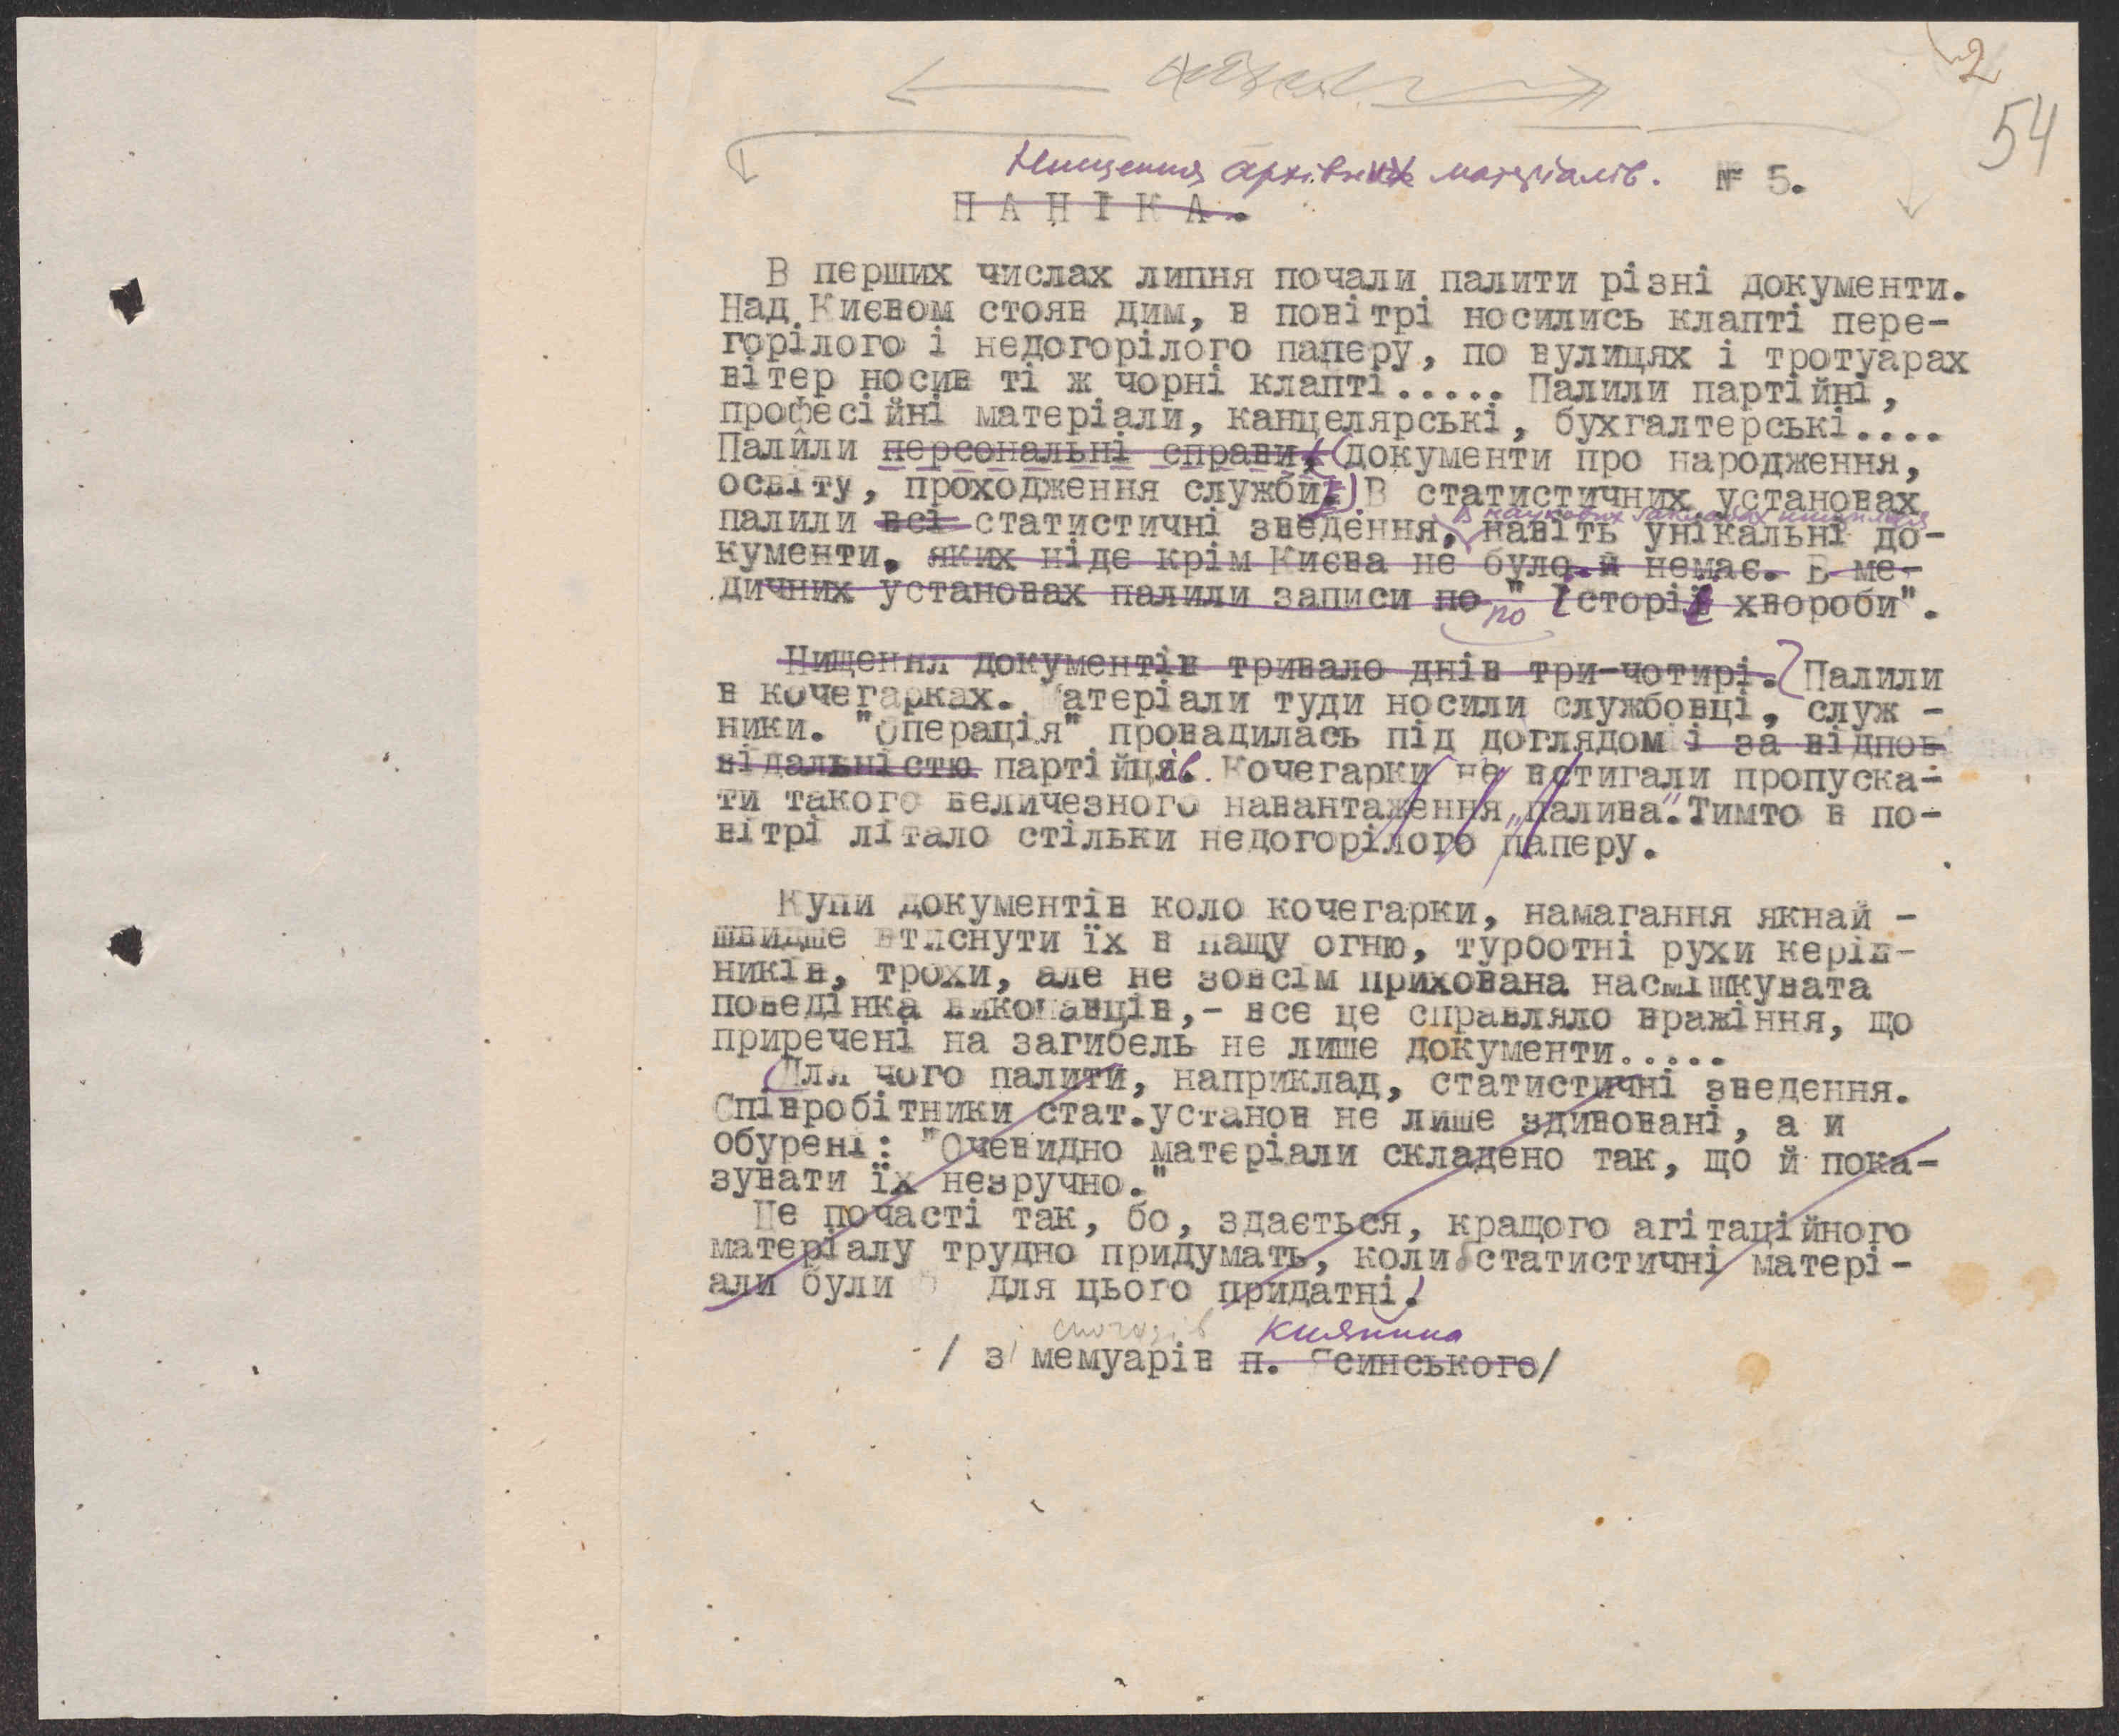 2
54
Нищення архівних матеріалів. № 5.
П А Н І К А .
В перших числах липня почали палити різні документи.
Над Києвом стояв дим, в повітрі носились клапті пере-
горілого і недогорілого паперу, по вулицях і тротуарах
вітер носив ті ж чорні клапті..... Палили партійні,
професійні матеріали, канцелярські, бухгалтерські....
Палили персональні справи, (документи про народження,
освіту, проходження служби.) В статистичних установах
В наукових закладах нищилися
палили всі статистичні зведення, навіть унікальні до-
кументи. яких ніде крім Києва не було й немає. В ме-
дичних установах палили записи по " Історії хвороби".
по
Нищення документів тривало днів три-чотирі. Палили
в кочегарках. Матеріали туди носили службовці, служ -
ники. "Операція" провадилась під доглядом і за відпов
відальністю партійців. Кочегарки не встигали пропуска-
ти такого величезного навантаження „палива". Тимто в по-
вітрі літало стільки недогорілого паперу.
Купи документів коло кочегарки, намагання якнай -
швидше втиснути їх в пащу огню, турботні рухи керів-
ників, трохи, але не зовсім прихована насмішкувата
поведінка виконавців,- все це справляло вражіння, що
приречені на загибель не лише документи.....
Для чого палити, наприклад, статистичні зведення.
Співробітники стат.установ не лише здивовані, а и
обурені: "Очевидно матеріали складено так, що й пока-
зувати їх незручно."
Це почасті так, бо, здається, кращого агітаційного
матеріалу трудно придумать, коли б статистичні матері-
али були для цього придатні.
спогадів Киянина
/ з мемуарів п. Ясинського/